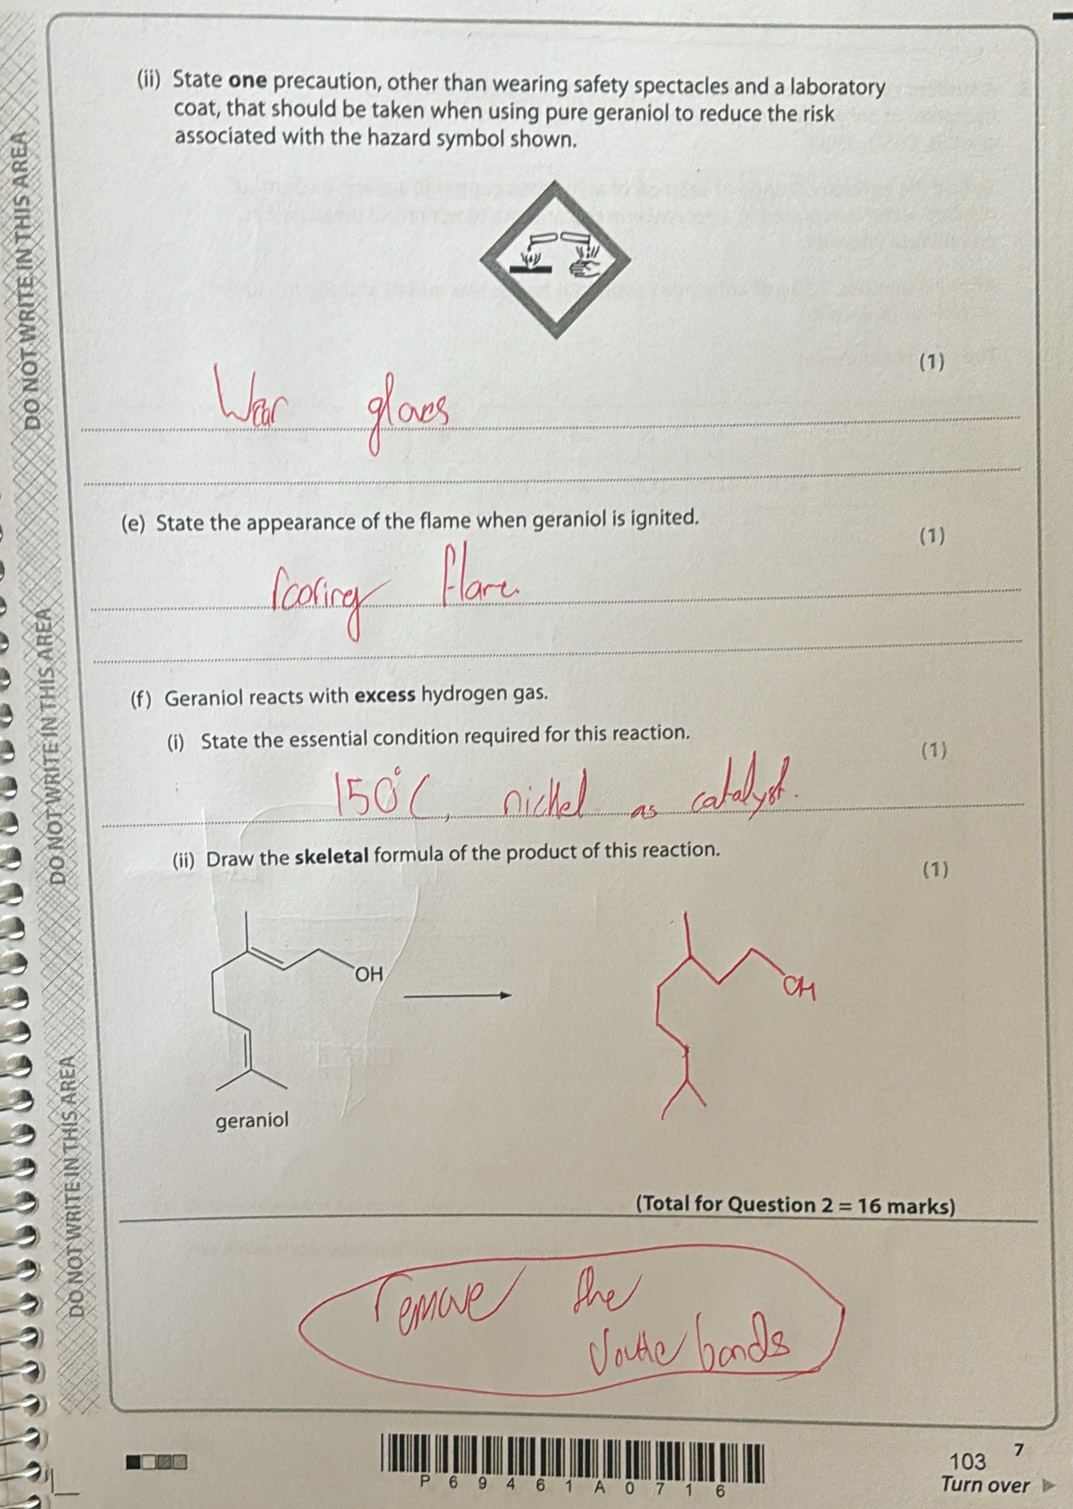 (ii) State one precaution, other than wearing safety spectacles and a laboratory
coat, that should be taken when using pure geraniol to reduce the risk
associated with the hazard symbol shown.
(1)
Wear gloves
(e) State the appearance of the flame when geraniol is ignited.
(1)
flame
(f) Geraniol reacts with excess hydrogen gas.
(i) State the essential condition required for this reaction.
(1)
150°C, nickel as catalyst.
(ii) Draw the skeletal formula of the product of this reaction.
(1)
OH
OH
geraniol
(Total for Question 2 = 16 marks)
remove the
double bonds
P69461A0716
103
7
Turn over
DO NOT WRITE IN THIS AREA
DO NOT WRITE IN THIS AREA
DO NOT WRITE IN THIS AREA